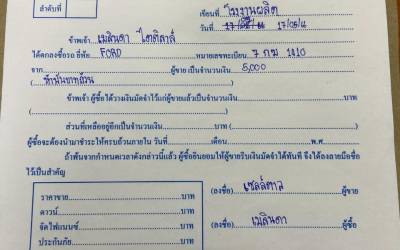 ลำดับที่
เขียนที่ โรงงานผลิต
วันที่ 17/05/61
ข้าพเจ้า เมลินดา
ได้ตกลงซื้อรถ ยี่ห้อ FORD หมายเลขทะเบียน 7 กฆ 1010
จาก ผู้ขาย เป็นจำนวนเงิน 5,000
(ห้าพันบาทถ้วน)
ข้าพเจ้า ผู้ซื้อได้วางเงินมัดจำไว้แก่ผู้ขายแล้วเป็นจำนวนเงิน บาท
( )
ส่วนที่เหลืออยู่อีกเป็นจำนวนเงิน บาท
ผู้ซื้อจะต้องนำมาชำระให้ครบถ้วนภายใน วันที่ เดือน พ.ศ.
ถ้าพ้นจากกำหนดเวลาดังกล่าวนี้แล้ว ผู้ซื้อยินยอมให้ผู้ขายริบเงินมัดจำได้ทันที จึงได้ลงลายมือชื่อ
ไว้เป็นสำคัญ
ราคาขาย บาท
ดาวน์ บาท
จัดไฟแนนซ์ บาท
ประกันภัย บาท
(ลงชื่อ) เซลล์ดาว ผู้ขาย
( )
(ลงชื่อ) เมลินดา ผู้ซื้อ